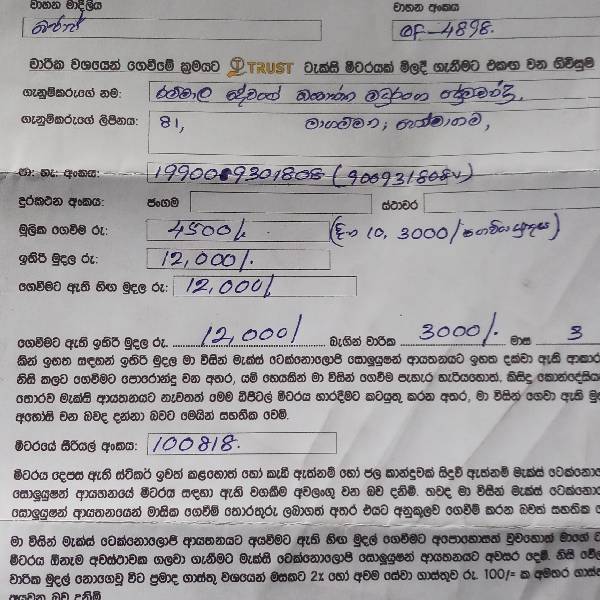 වාහන මාදිලිය
වාහන අංකය
QF-4898.
වාරික වශයෙන් ගෙවීමේ ක්‍රමයට TRUST ටැක්සි මීටරයක් මිලදී ගැනීමට එකඟ වන ගිවිසුම
ගැනුම්කරුගේ නම:
ගැනුම්කරුගේ ලිපිනය: 81, මාගම්මන, හෝමාගම,
හා: හැ: අංකය: 199006901808 (900931808V)
දුරකථන අංකය: ජංගම ස්ථාවර
මූලික ගෙවීම රු: 4500/. (දින 10, 3000/
ඉතිරි මුදල රු: 12,000/.
ගෙවීමට ඇති හිඟ මුදල රු: 12,000/
ගෙවීමට ඇති ඉතිරි මුදල රු. 12,000/ බැගින් වාරික 3000/. මාස 3
කින් ඉහත සඳහන් ඉතිරි මුදල මා විසින් මැක්ස් ටෙක්නොලොජි සොලුයුෂන් ආයතනයට ඉහත දක්වා ඇති ආකාර
නිසි කලට ගෙවීමට පොරොන්දු වන අතර, යම් හෙයකින් මා විසින් ගෙවීම් පැහැර හැරියහොත්, කිසිදු කොන්දේසිය
තොරව මැක්සි ආයතනයට නැවතත් මෙම ඩිජිටල් මීටරය භාරදීමට කටයුතු කරන අතර, මා විසින් ගෙවා ඇති මු
අහෝසි වන බවද දන්නා බවට මෙයින් සහතික වෙමි.
මීටරයේ සීරියල් අංකය: 100818.
මීටරය දෙපස ඇති ස්ටිකර් ඉවත් කළහොත් හෝ කැඩී ඇත්නම් හෝ ජල කාන්දුවක් සිදුවී ඇත්නම් මැක්ස් ටෙක්නො
සොලුයුෂන් ආයතනයේ මීටරය සඳහා ඇති වගකීම අවලංගු වන බව දනිමි. තවද මා විසින් මැක්ස් ටෙක්නො
සොලුයුෂන් ආයතනයෙන් මාසික ගෙවීම් තොරතුරු ලබාගත් අතර එයට අනුකූලව ගෙවීම් කරන බවත් සහතික
මා විසින් මැක්ස් ටෙක්නොලොජි ආයතනයට අයවීමට ඇති හිඟ මුදල් ගෙවීමට අපොහොසත් වුවහොත් මාගේ ට
මීටරය ඕනෑම අවස්ථාවක ගලවා ගැනීමට මැක්සි ටෙක්නොලොජි සොලුයුෂන් ආයතනයට අවසර දෙමි. නිසි වේල
වාරික මුදල් නොගෙවූ විට ප්‍රමාද ගාස්තු වශයෙන් මසකට 2% හෝ අවම සේවා ගාස්තුව රු. 100/= ක අමතර ගාස්
අයවන බව දනිමි